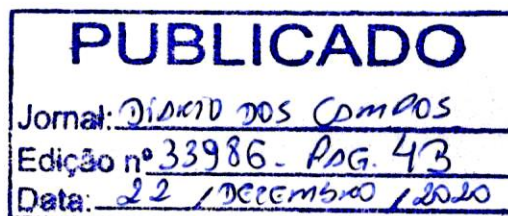 PUBLICADO
Jornal: DIÁRIO DOS CAMPOS
Edição nº 33986 - PAG. 4B
Data: 22 / DEZEMBRO / 2020